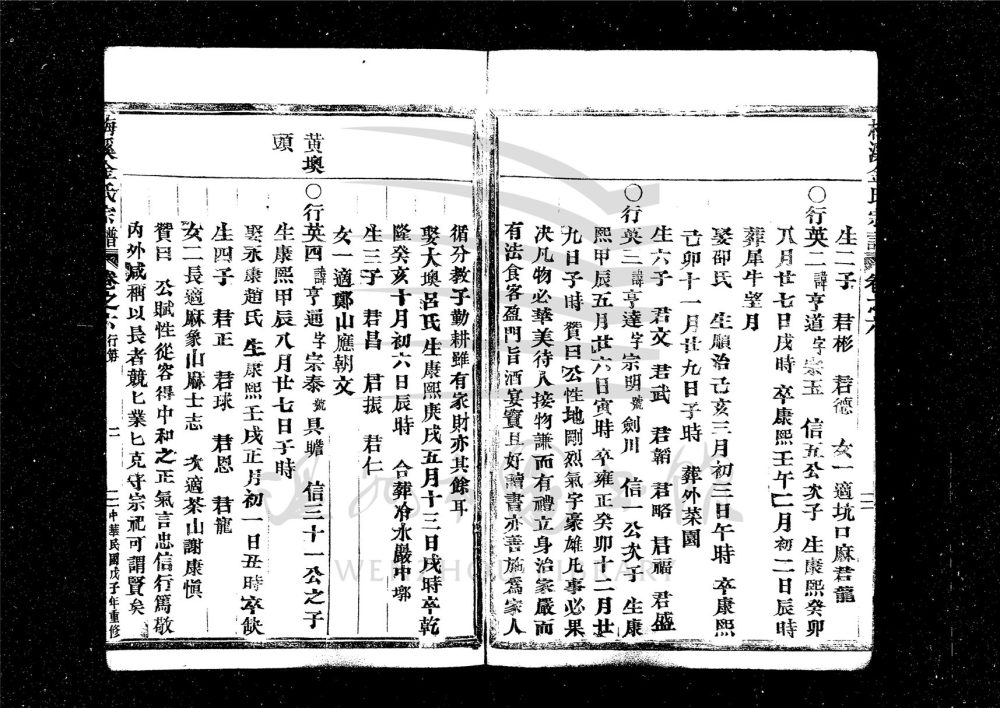 梅溪金氏宗譜 卷之六
生二子 君彬 君德 女一適坑口麻君龍
○行英二諱亨道字宗玉 信五公次子 生康熙癸卯
八月廿七日戌時 卒康熙壬午二月初二日辰時
葬犀牛望月
娶邵氏 生順治己亥三月初三日午時 卒康熙
己卯十一月廿九日子時 葬外菜園
生六子 君文 君武 君韜 君略 君福 君盛
○行英三諱亨達字宗明號劍川 信一公次子 生康
熙甲辰五月廿六日寅時 卒雍正癸卯十二月廿
九日子時 贊曰公性地剛烈氣字豪雄凡事必果
決凡物必華美待人接物謙而有禮立身治家嚴而
有法食客盈門旨酒宴賓且好讀書亦善施爲家人
循分教子勤耕雖有家財亦其餘耳
娶大墺呂氏生康熙庚戌五月十三日戌時卒乾
隆癸亥十月初六日辰時 合葬冷水嚴中墎
生三子 君昌 君振 君仁
女一適鄭山應朝文
黃墺
頭
○行英四諱亨通字宗泰號具瞻 信三十一公之子
生康熙甲辰八月廿七日子時
娶永康趙氏 生康熙壬戌正月初一日丑時卒缺
生四子 君正 君球 君恩 君龍
女二長適麻象山麻士志 次適茶山謝康愼
贊曰 公賦性從容得中和之正氣言忠信行篤敬
內外咸稱以長者競匕業匕克守宗祀可謂賢矣
梅溪金氏宗譜 卷之六 行第 二 中華民國戊子年重修
WENZHOU LIBRARY